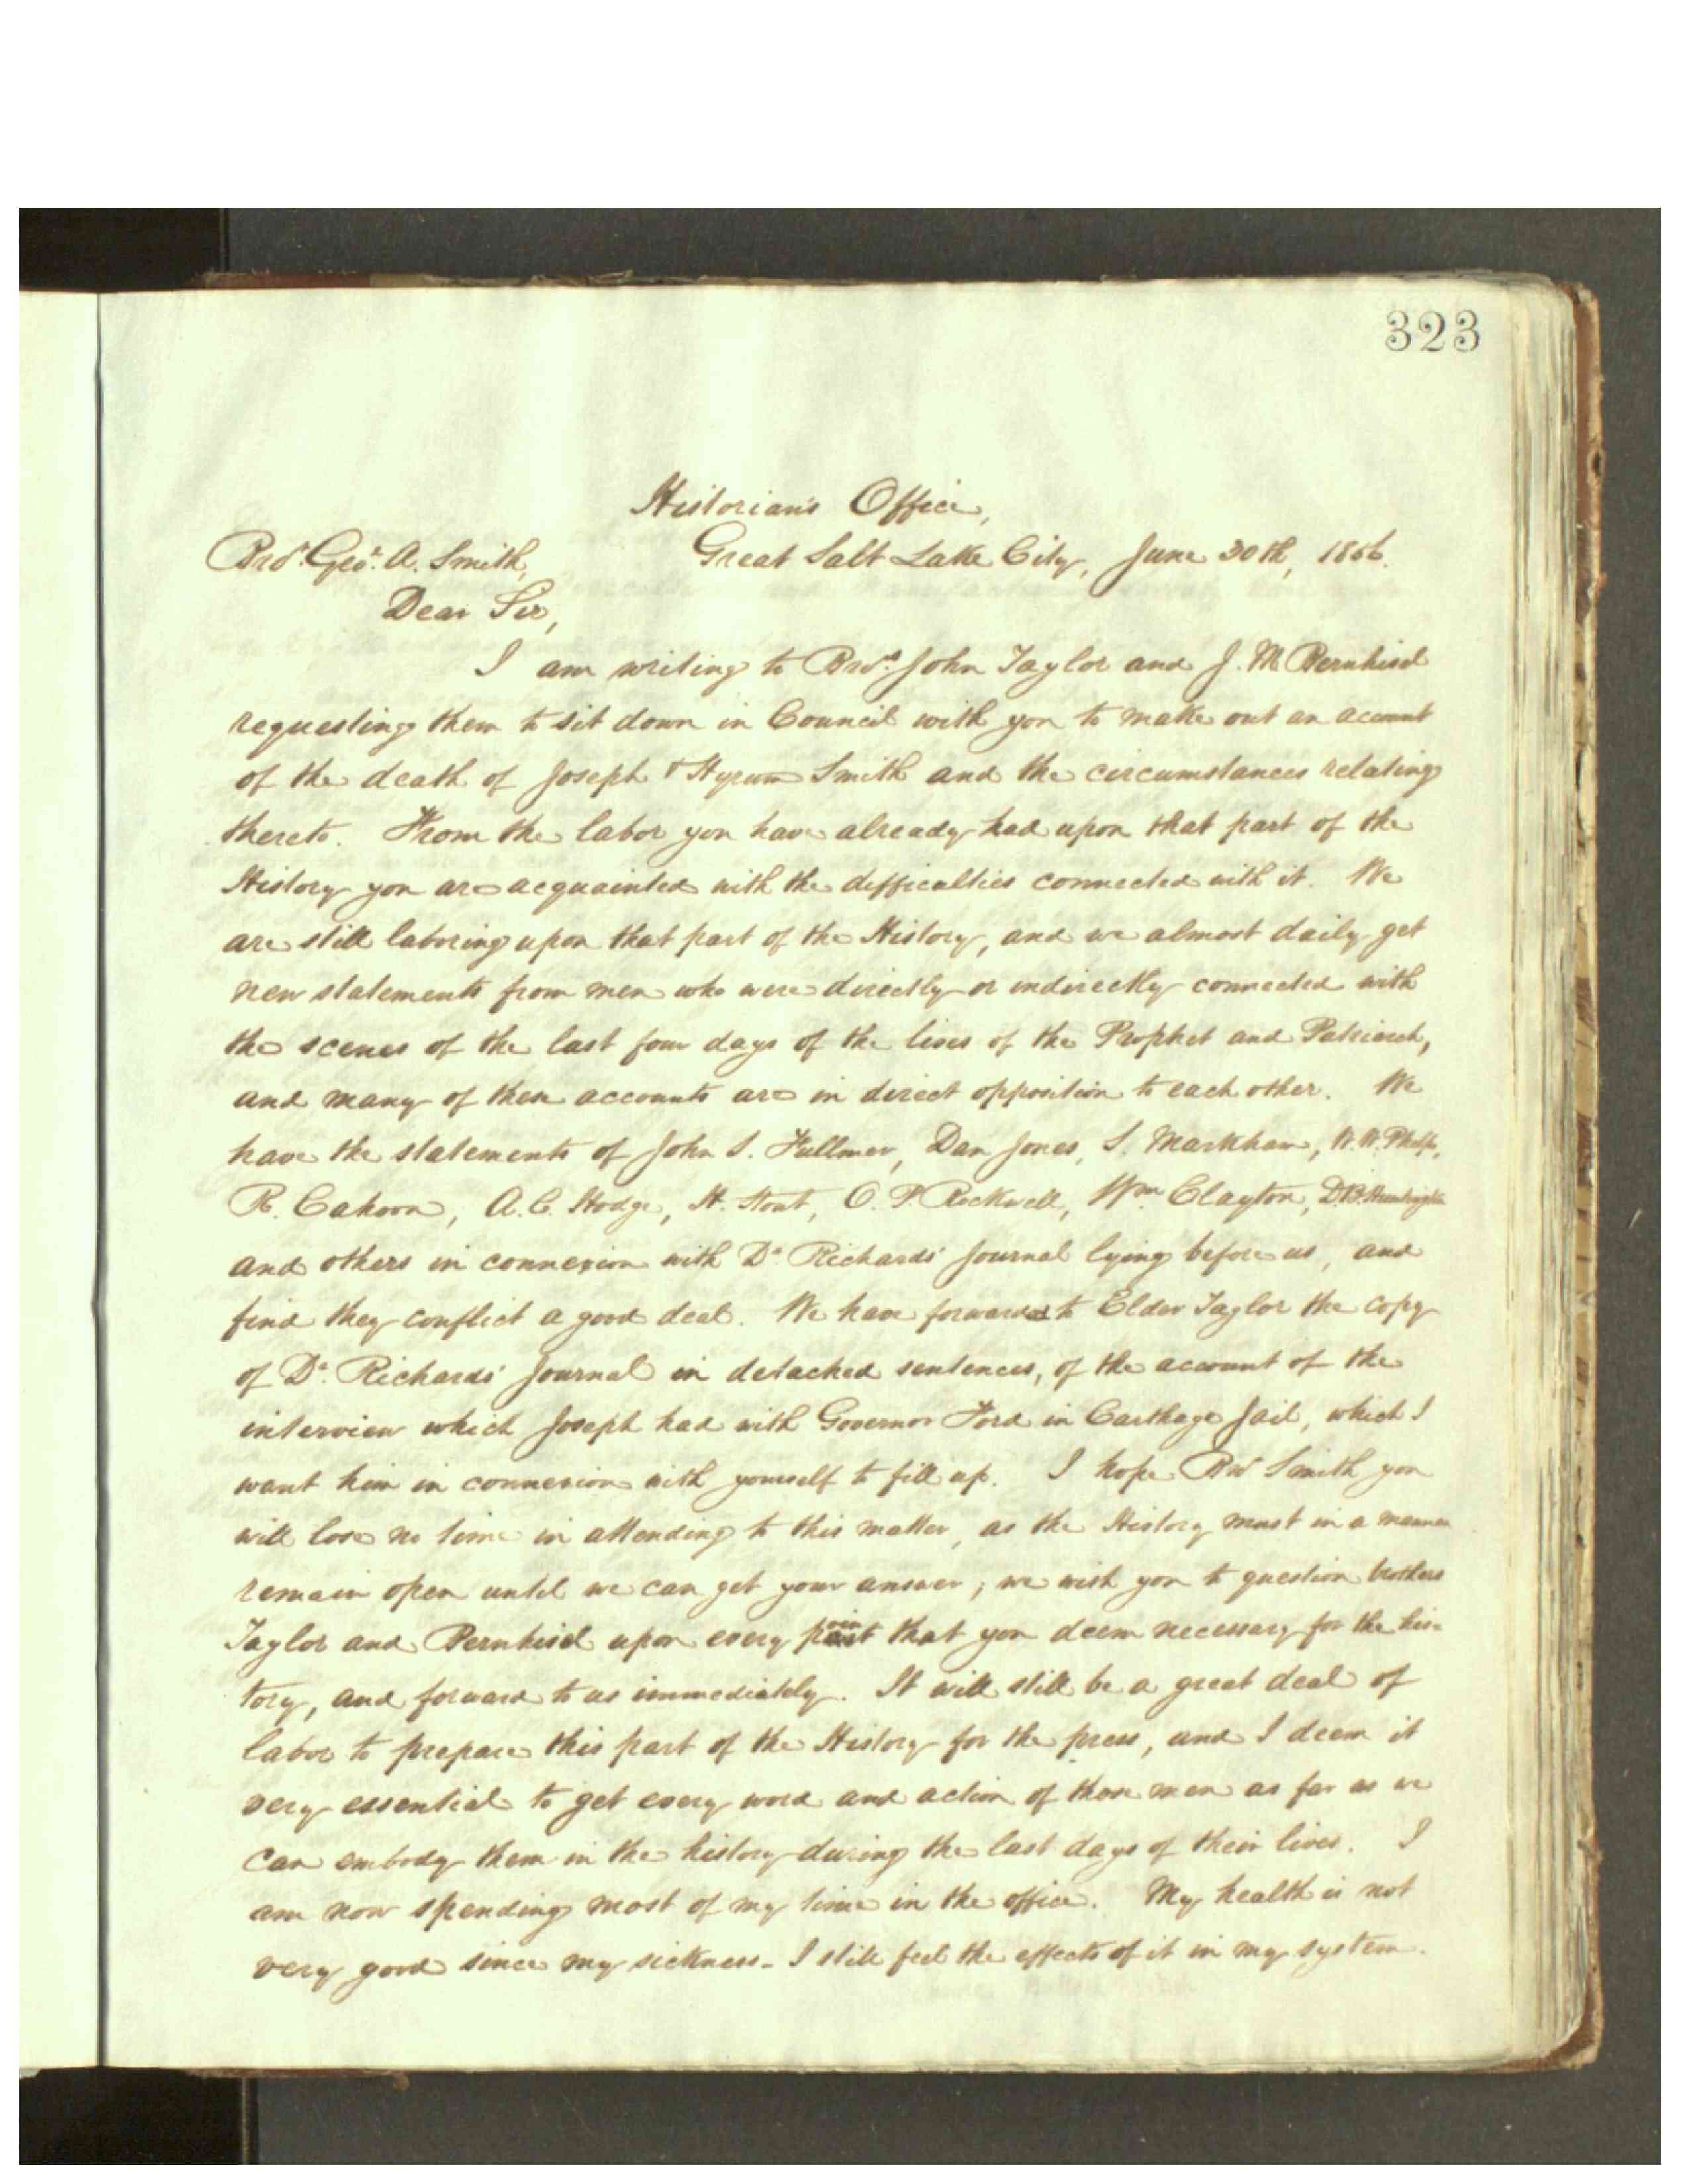 323
Historian's Office,
Bro. Geo. A. Smith, Great Salt Lake City, June 30th, 1856.
Dear Sir,
I am writing to Bros. John Taylor and J. M. Bernhisel
requesting them to sit down in Council with you to make out an account
of the death of Joseph & Hyrum Smith and the circumstances relating
thereto. From the labor you have already had upon that part of the
History you are acquainted with the difficulties connected with it. We
are still laboring upon that part of the History, and we almost daily get
new statements from men who were directly or indirectly connected with
the scenes of the last four days of the lives of the Prophet and Patriarch,
and many of these accounts are in direct opposition to each other. We
have the statements of John S. Fullmer, Dan Jones, S. Markham, W. W. Phelps,
R. Cahoon, A. C. Hodge, H. Stout, O. P. Rockwell, Wm. Clayton, D. B. Huntington
and others in connexion with Dr. Richards' Journal lying before us, and
find they conflict a good deal. We have forwarded to Elder Taylor the copy
of Dr. Richards' Journal in detached sentences, of the account of the
interview which Joseph had with Governor Ford in Carthage Jail, which I
want him in connexion with yourself to fill up. I hope Bro Smith you
will lose no time in attending to this matter, as the History must in a manner
remain open until we can get your answer; we wish you to question brothers
Taylor and Bernhisel upon every point that you deem necessary for the his-
tory, and forward to us immediately. It will still be a great deal of
labor to prepare this part of the History for the press, and I deem it
very essential to get every word and action of those men as far as we
can embody them in the history during the last days of their lives. I
am now spending most of my time in the office. My health is not
very good since my sickness - I still feel the effects of it in my system.